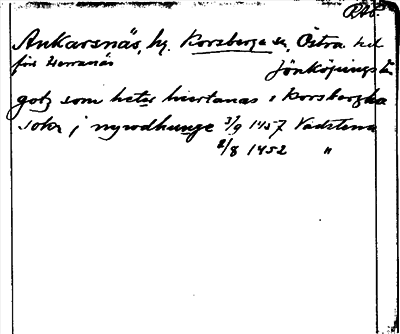 RAp.
Ankarsnäs, hg. Korsberga sn, Östra hd
för Herranäs Jönköpings län
gotz som heter hiertanas i Korsbergha
sokn j nyrodhunge 3/9 1457 Vadstena
2/8 1452 "